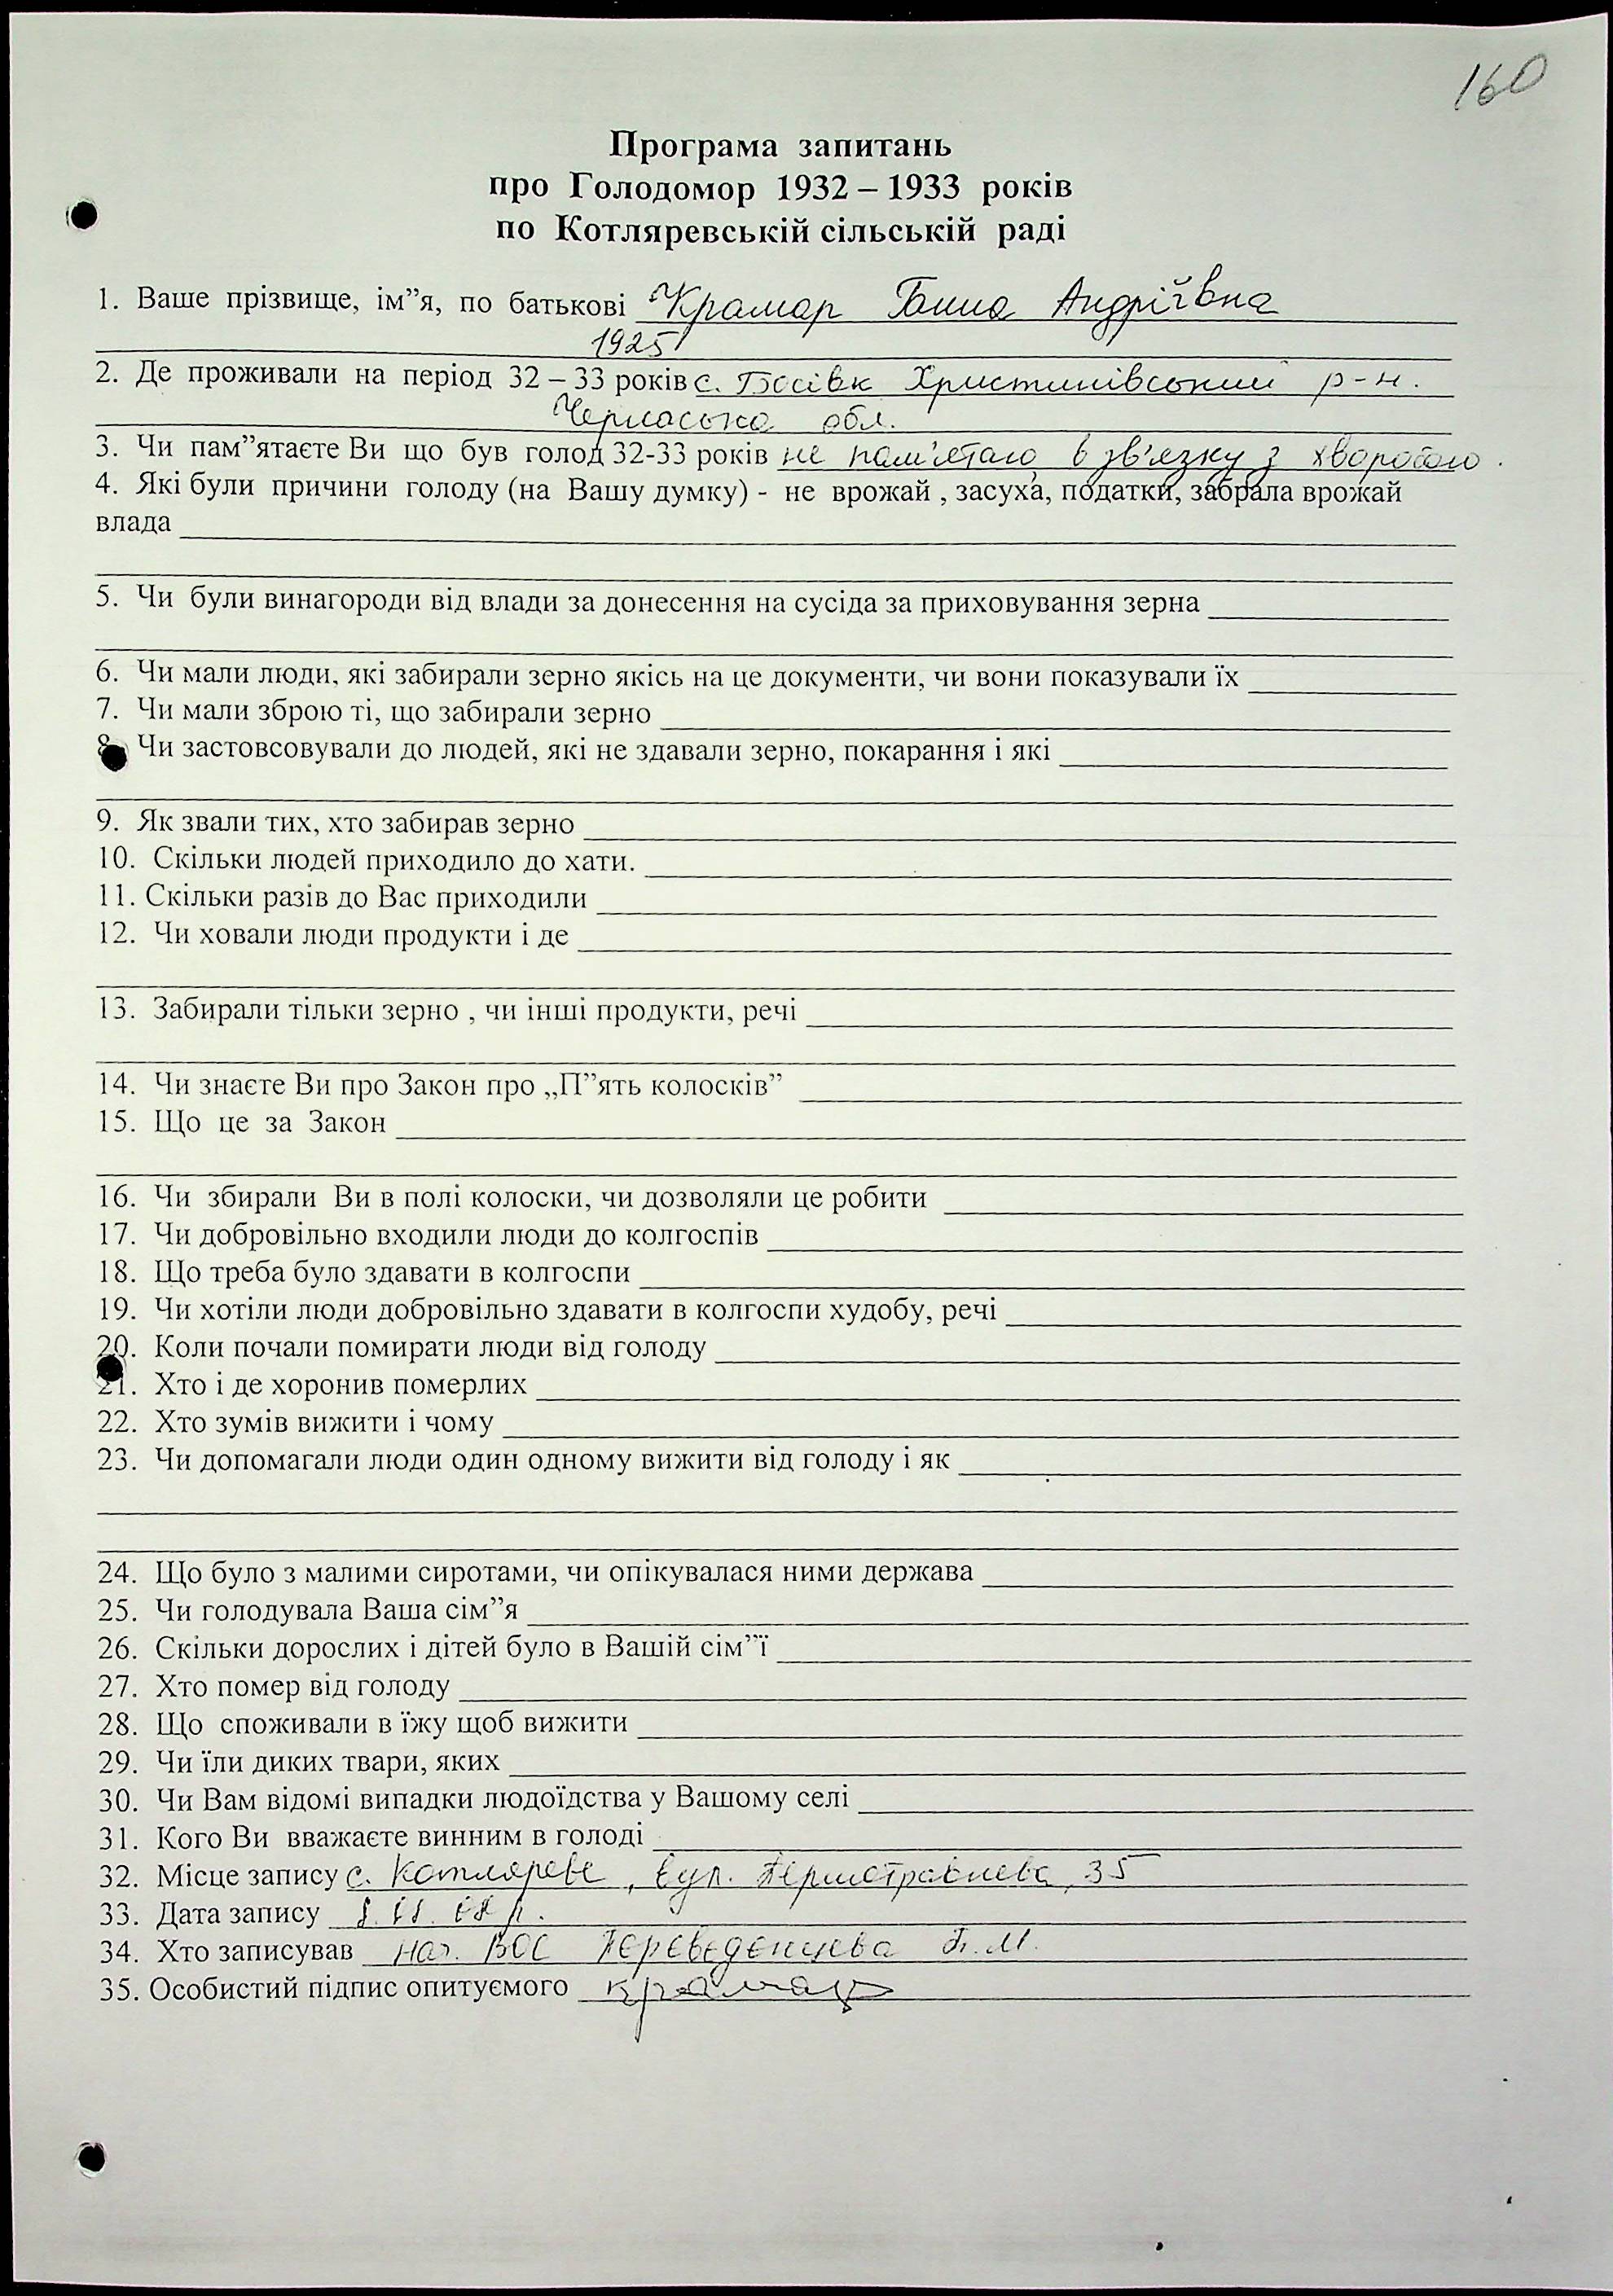 160
Програма запитань
про Голодомор 1932 – 1933 років
по Котляревській сільській раді
1. Ваше прізвище, ім”я, по батькові Крамар Ганна Андріївна
1925
2. Де проживали на період 32 – 33 років с. Босівк Христинівський р-н.
Черкаська обл.
3. Чи пам”ятаєте Ви що був голод 32-33 років не пам'ятаю в зв'язку з хворобою.
4. Які були причини голоду (на Вашу думку) - не врожай , засуха, податки, забрала врожай
влада
5. Чи були винагороди від влади за донесення на сусіда за приховування зерна
6. Чи мали люди, які забирали зерно якісь на це документи, чи вони показували їх
7. Чи мали зброю ті, що забирали зерно
8. Чи застовсовували до людей, які не здавали зерно, покарання і які
9. Як звали тих, хто забирав зерно
10. Скільки людей приходило до хати.
11. Скільки разів до Вас приходили
12. Чи ховали люди продукти і де
13. Забирали тільки зерно , чи інші продукти, речі
14. Чи знаєте Ви про Закон про „П”ять колосків”
15. Що це за Закон
16. Чи збирали Ви в полі колоски, чи дозволяли це робити
17. Чи добровільно входили люди до колгоспів
18. Що треба було здавати в колгоспи
19. Чи хотіли люди добровільно здавати в колгоспи худобу, речі
20. Коли почали помирати люди від голоду
21. Хто і де хоронив померлих
22. Хто зумів вижити і чому
23. Чи допомагали люди один одному вижити від голоду і як
24. Що було з малими сиротами, чи опікувалася ними держава
25. Чи голодувала Ваша сім”я
26. Скільки дорослих і дітей було в Вашій сім”ї
27. Хто помер від голоду
28. Що споживали в їжу щоб вижити
29. Чи їли диких твари, яких
30. Чи Вам відомі випадки людоїдства у Вашому селі
31. Кого Ви вважаєте винним в голоді
32. Місце запису с. Котляреве, вул. Першотравнева, 35
33. Дата запису
34. Хто записував нач. ВОС Переведенцева
35. Особистий підпис опитуємого крамар